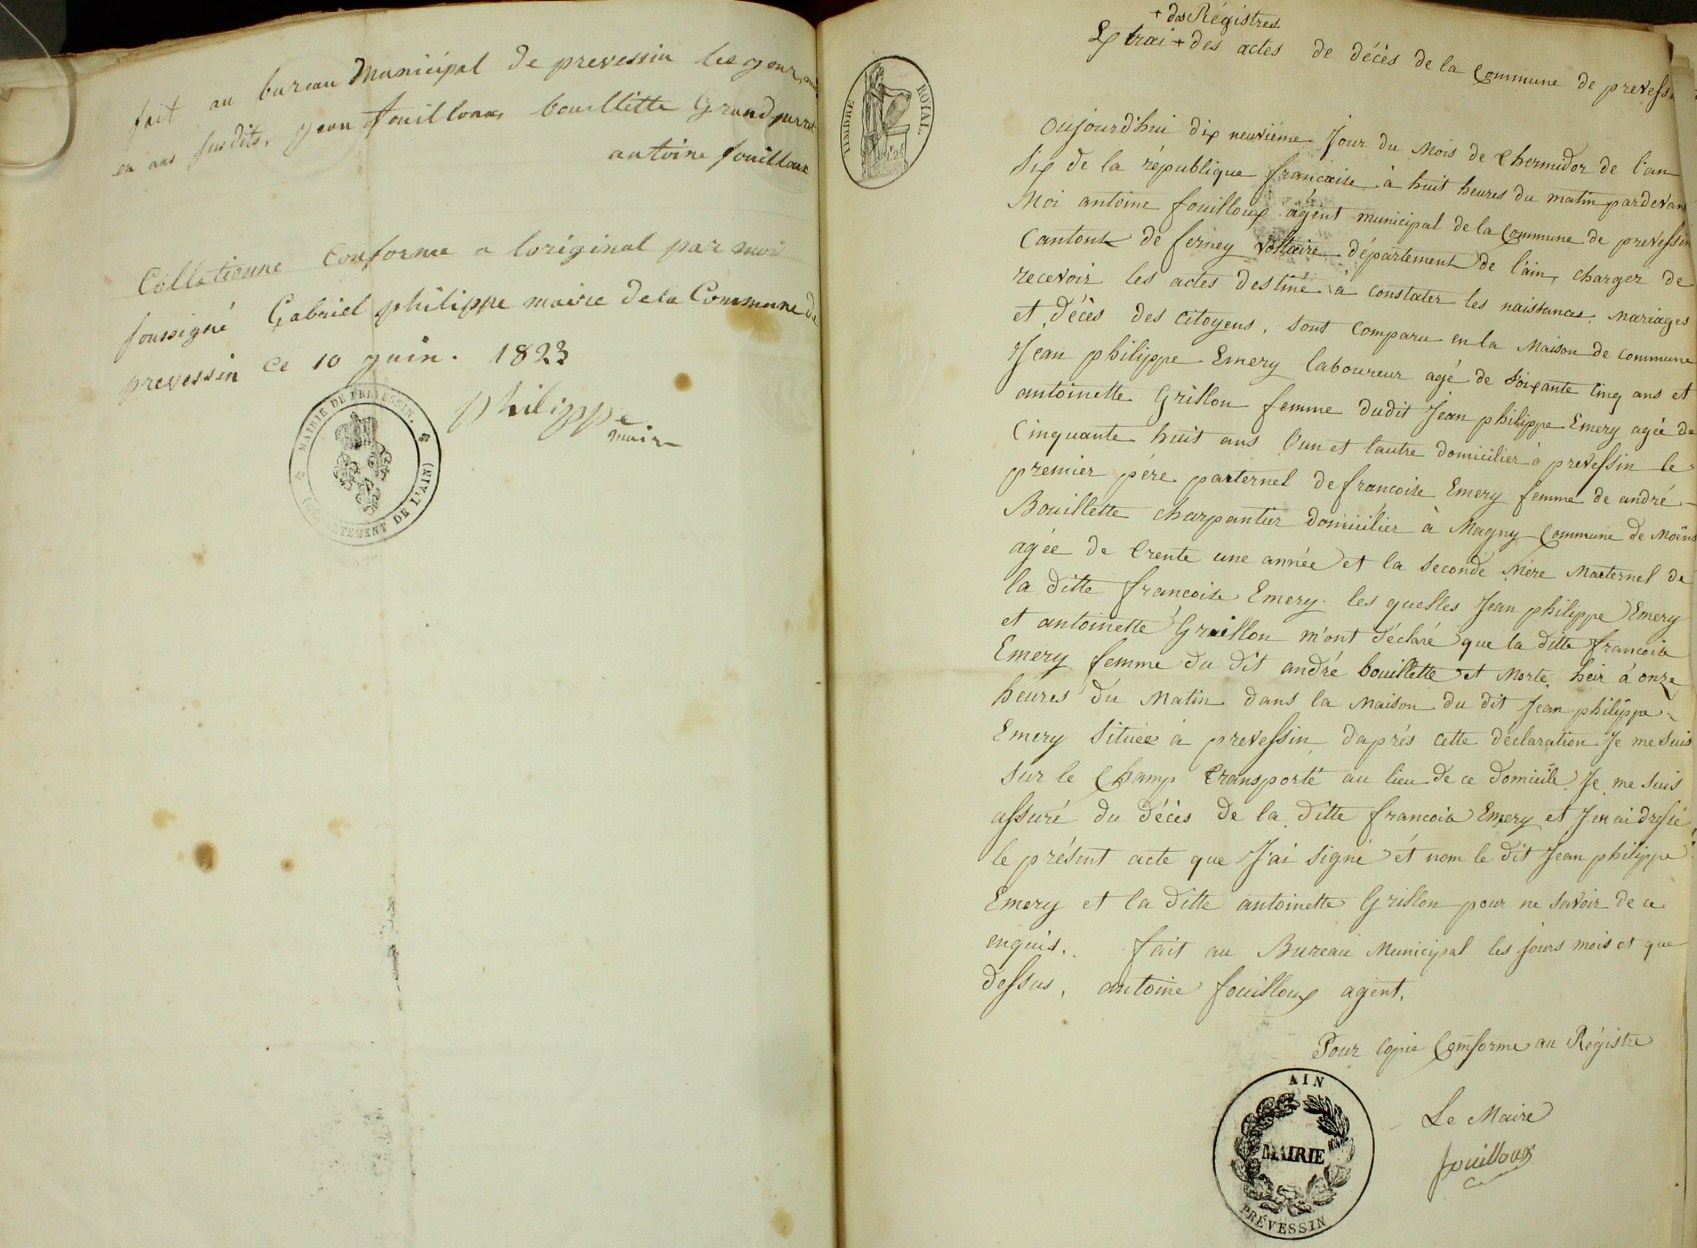 fait au bureau Municipal de prevessin les jour,
en ans susdits, jean fouilloux bouillette Grandperret
antoine fouilloux
Collationne Conforme a loriginal par moi
soussigné Gabriel philippe maire dela Commune de
prevessin ce 10 juin. 1823
philippe
maire
MAIRIE DE PREVESSIN.
(DEPARTEMENT DE L'AIN)
TIMBRE ROYAL.
+ des Régistres
Extrai + des actes de décès de la Commune de prevessin
Oujourd'hui dix neuviéme Jour du Mois de thermidor de l'an
Six de la république francaise à huit heures du matin pardevant
Moi antoine fouilloux agent municipal de la Commune de prevessin
Canton de ferney voltaire département de l'ain, charger de
recevoir les actes destiné à constater les naissances, Mariages
et décès des Citoyens, sont Comparu en la Maison de commune
Jean philippe Emery laboureur agé de Soixante Cinq ans et
antoinette Grillon femme dudit Jean philippe Emery agée de
Cinquante huit ans l'un et lautre domicilier à prevessin le
premier pére parternel de francoise Emery femme de andré
Bouillette charpantier domicilier à Magny Commune de Moëns
agée de trente une année et la seconde Mére Maternel de
la ditte francoise Emery. les quelles Jean philippe Emery
et antoinette Grillon m'ont déclaré que la ditte francoise
Emery femme du dit andré bouillette et Morte heir à onze
heures du Matin dans la Maison du dit Jean philippe
Emery Située à prevessin daprés cette déclaration Je me suis
sur le Champ transporté au lieu de ce domicile Je me suis
assuré du décès de la ditte francoise Emery et J'en ai dressé
le présent acte que J'ai signé et nom le dit Jean philippe
Emery et la ditte antoinette Grillon pour ne savoir de ce
enquis. fait au Bureau Municipal les jours mois et que
dessus, antoine fouilloux agent.
Pour Copie Comforme au Régistre
Le Maire
fouilloux
AIN
MAIRIE
PRÉVESSIN